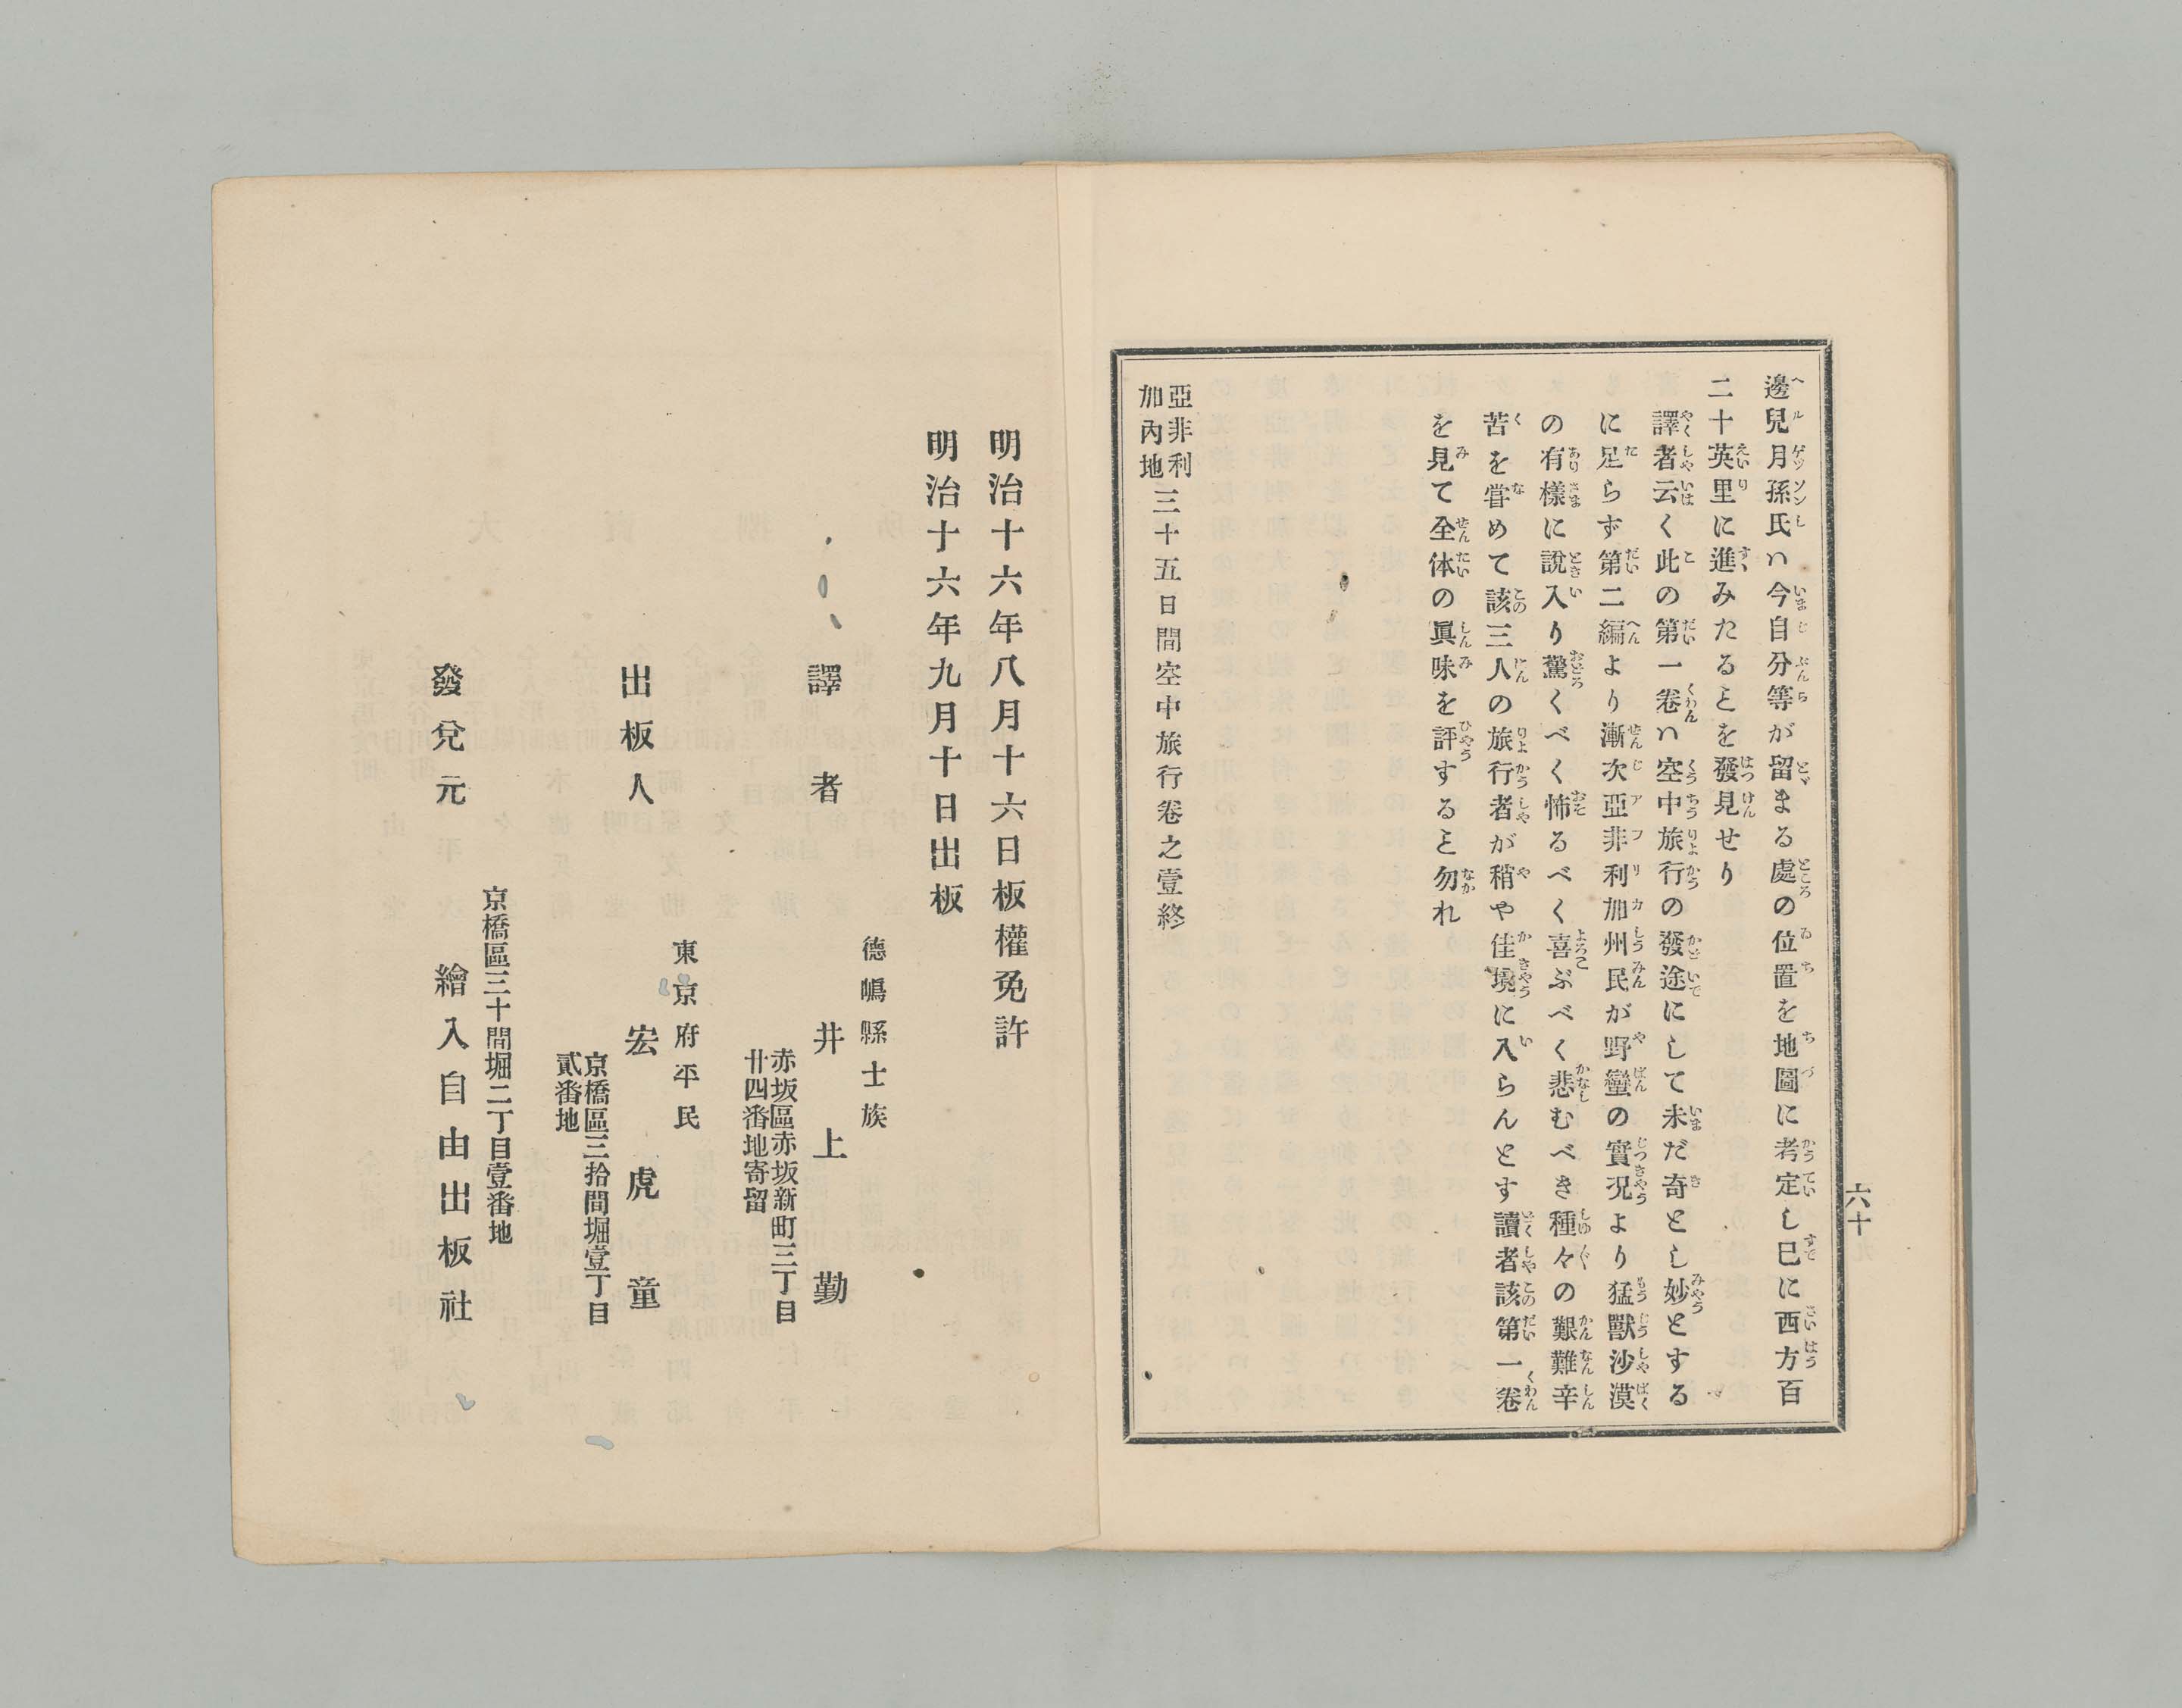 邊兒月孫氏ハ今自分等が留まる處の位置を地圖に考定し已に西方百
二十英里に進みたるとを發見せり
譯者云く此の第一卷ハ空中旅行の發途にして未だ奇とし妙とする
に足らず第二編より漸次亞非利加州民が野蠻の實况より猛獸沙漠
の有樣に說入り驚くべく怖るべく喜ぶべく悲むべき種々の艱難辛
苦を甞めて該三人の旅行者が稍や佳境に入らんとす讀者該第一卷
を見て全体の眞味を評すると勿れ
亞非利加內地三十五日間空中旅行卷之壹終
六十
明治十六年八月十六日板權免許
明治十六年九月十日出板
德嶋縣士族
譯者 井上勤
赤坂區赤坂新町三丁目
廿四番地寄留
東京府平民
出板人 宏虎童
京橋區三拾間堀壹丁目
貳番地
京橋區三十間堀二丁目壹番地
發兌元 繪入自由出板社